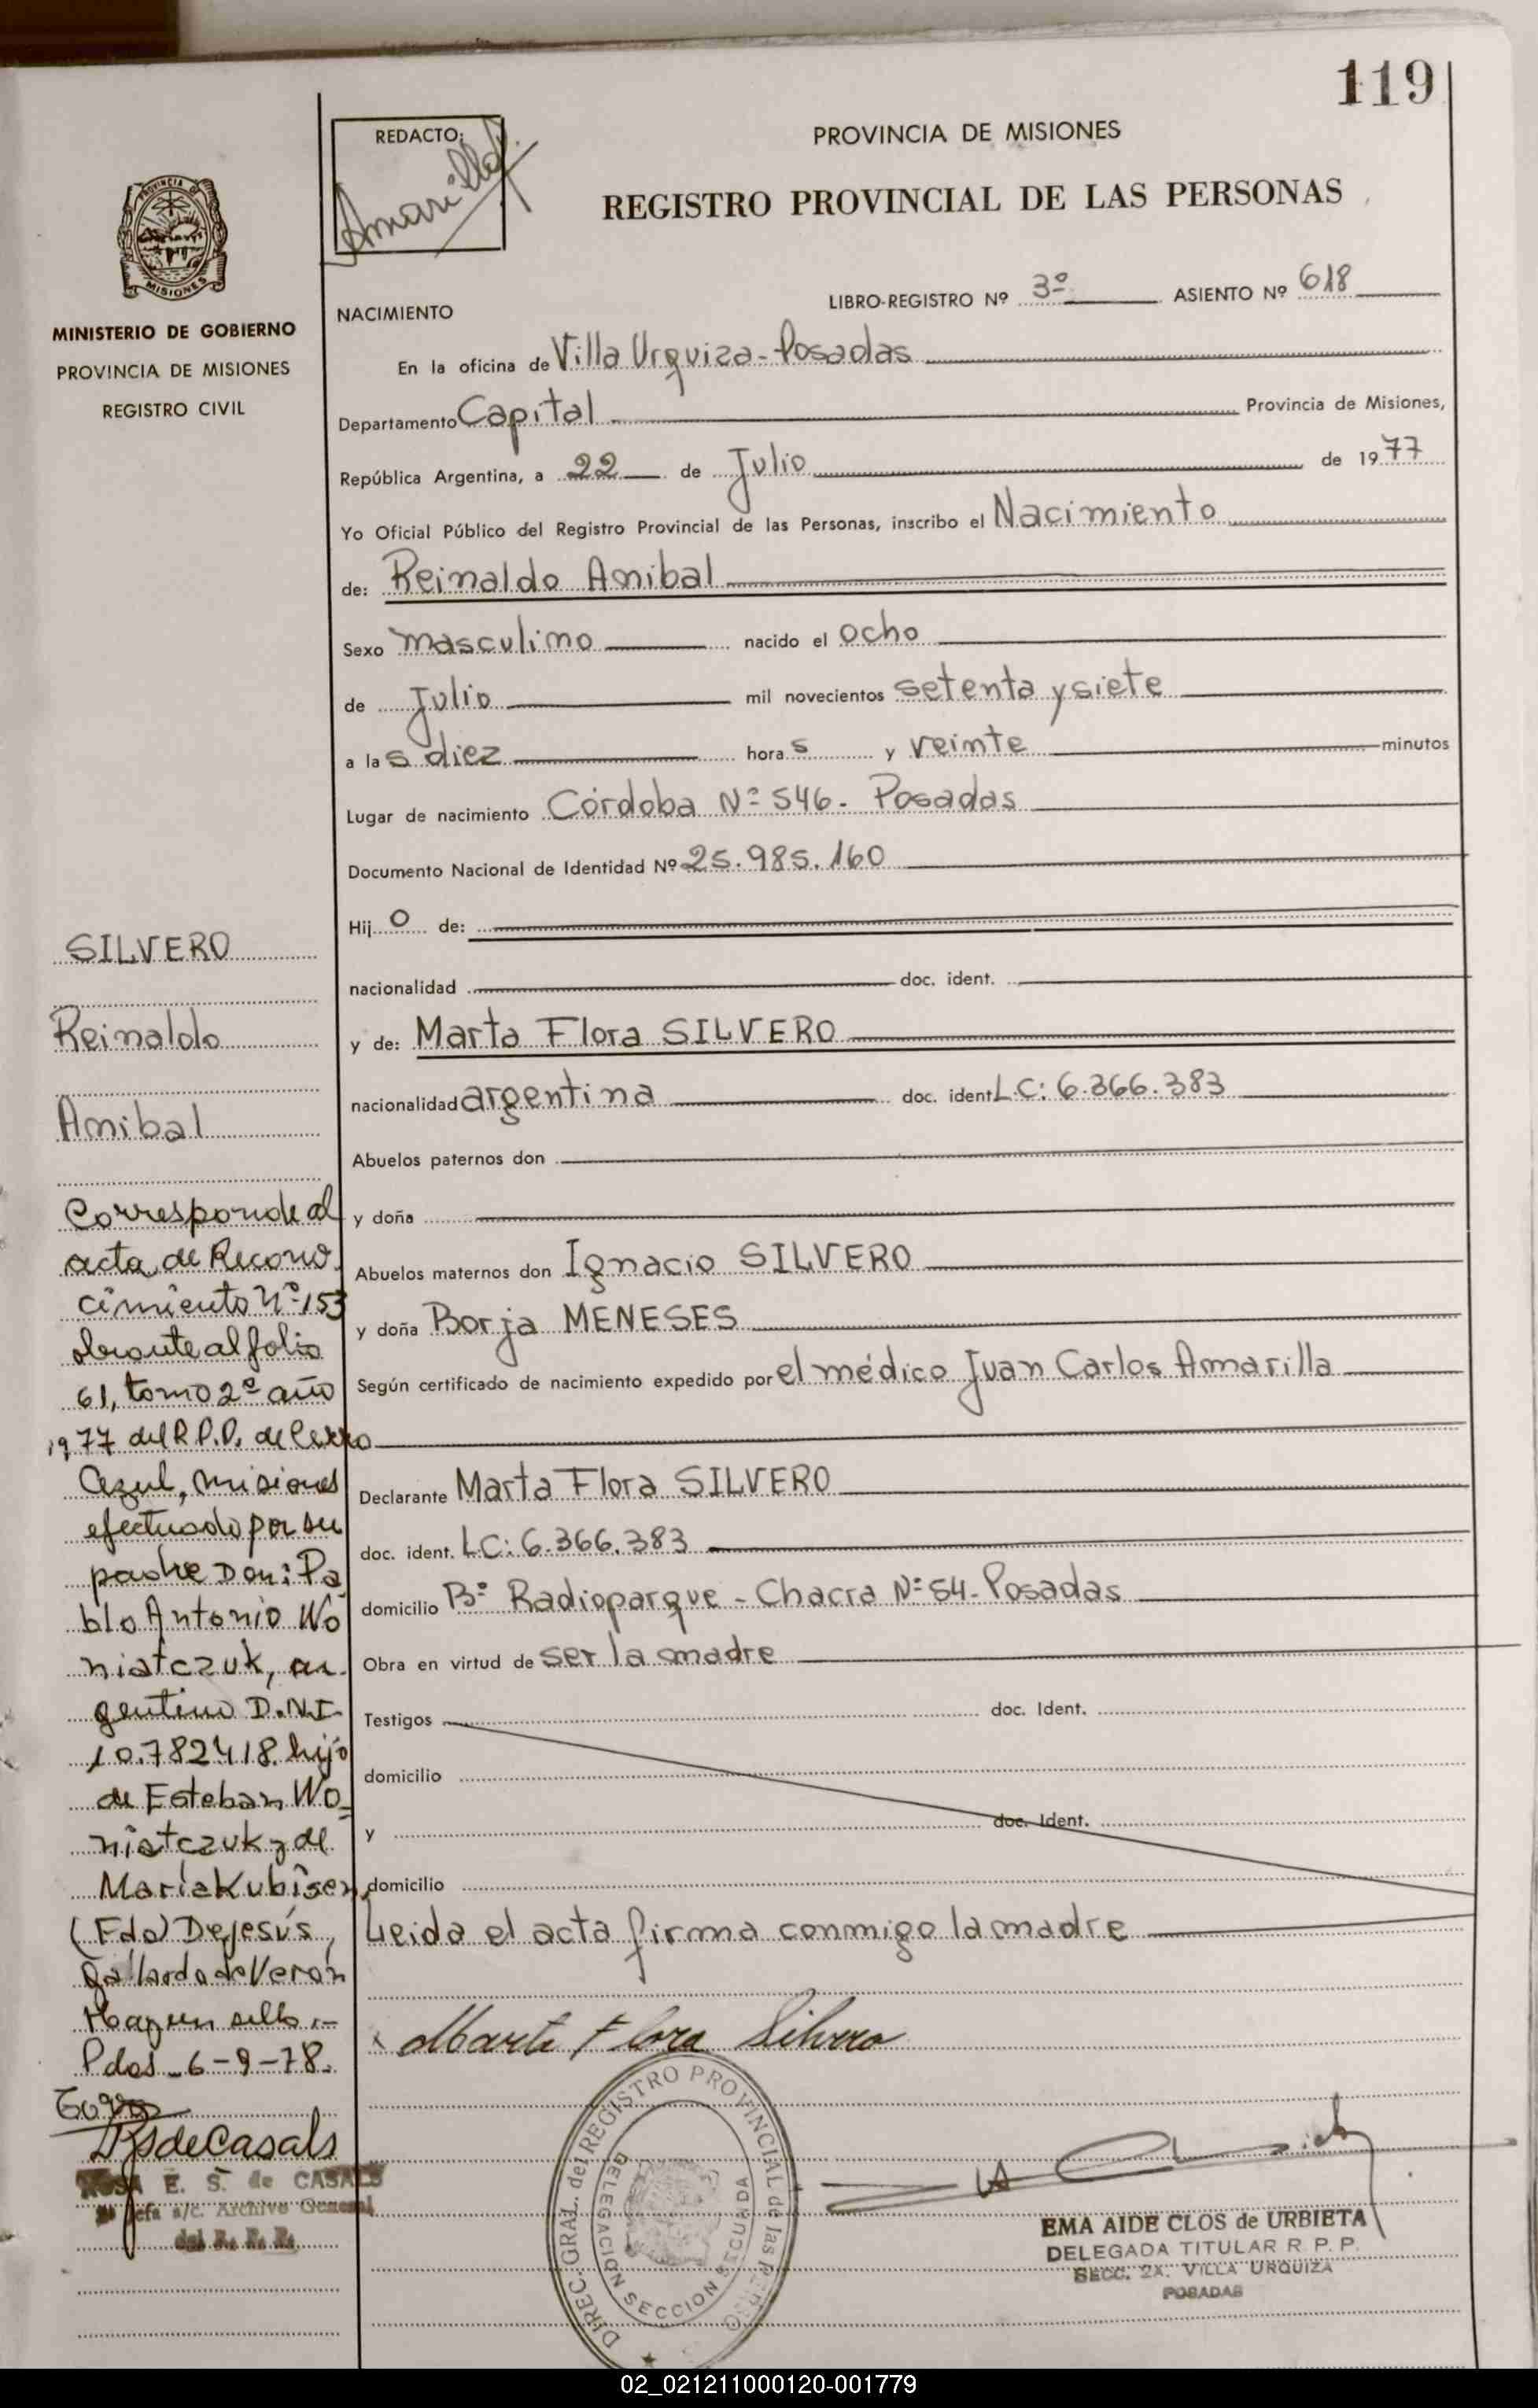 119
REDACTO:
Amarilla
PROVINCIA DE MISIONES
REGISTRO PROVINCIAL DE LAS PERSONAS
MISIONES
MINISTERIO DE GOBIERNO
PROVINCIA DE MISIONES
REGISTRO CIVIL
LIBRO-REGISTRO Nº 3º ASIENTO Nº 618
NACIMIENTO
En la oficina de Villa Urquiza - Posadas
Departamento Capital Provincia de Misiones,
República Argentina, a 22 de Julio de 1977
Yo Oficial Público del Registro Provincial de las Personas, inscribo el Nacimiento
de: Reinaldo Anibal
Sexo masculino nacido el ocho
de Julio mil novecientos setenta y siete
a las diez horas y veinte minutos
Lugar de nacimiento Córdoba Nº 546 - Posadas
Documento Nacional de Identidad Nº 25.985.160
Hijo de:
nacionalidad doc. ident.
y de: Marta Flora SILVERO
nacionalidad argentina doc. ident LC: 6.366.383
Abuelos paternos don
y doña
Abuelos maternos don Ignacio SILVERO
y doña Borja MENESES
Según certificado de nacimiento expedido por el médico Juan Carlos Amarilla
Declarante Marta Flora SILVERO
doc. ident. LC: 6.366.383
domicilio Bº Radioparque - Chacra Nº 54 - Posadas
Obra en virtud de ser la madre
Testigos doc. Ident.
domicilio
y doc. Ident.
domicilio
Leida el acta firma conmigo la madre
x Marta Flora Silvero
SILVERO
Reinaldo
Anibal
Corresponde al
acta de Recono
cimiento Nº 153
obrante al folio
61, tomo 2º año
1977 del R.P.P. de Cerro
Azul, Misiones
efectuado por su
padre Don: Pa
blo Antonio Wo
niatczuk, ar-
gentino D.N.I.
10.782418. hijo
de Esteban Wo=
niatczuk y de
María Kubisen
(Fdo) De Jesús
Gallardo de Verón
Hay un sello.-
Pdas - 6-9-78.
RSdeCasals
ROSA E. S. de CASALS
Jefa a/c. Archivo General
del R. P. P.
DIREC. GRAL. del REGISTRO PROVINCIAL de las PERSO
DELEGACION SECCION SEGUNDA
EMA AIDE CLOS de URBIETA
DELEGADA TITULAR R. P. P.
SECC. 2A. VILLA URQUIZA
POSADAS
02_021211000120-001779